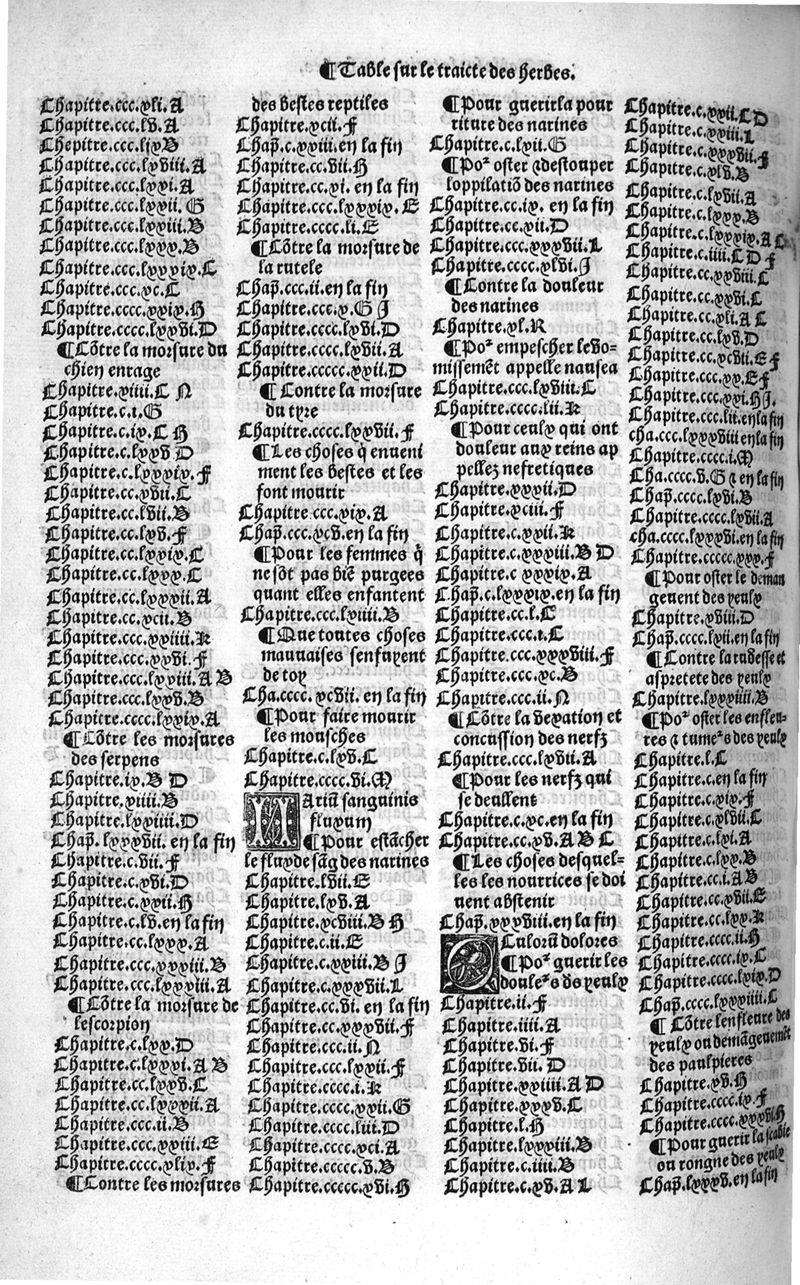 ¶Table sur le traicte des herbes.
Chapitre.ccc.xli.A
Chapitre.ccc.lv.A
Chepitre.ccc.lxv.B
Chapitre.ccc.lxviii.A
Chapitre.ccc.lxxi.A
Chapitre.ccc.lxxii.G
Chapitre.ccc.lxxiii.B
Chapitre.ccc.lxxx.B
Chapitre.ccc.lxxxix.C
Chapitre.ccc.xc.C
Chapitre.cccc.xxix.H
Chapitre.cccc.lxxvi.D
¶Cõtre la morsure du
chien enrage
Chapitre.xiiii.C N
Chapitre.c.i.G
Chapitre.c.ix.C H
Chapitre.c.lxxv D
Chapitre.c.lxxxix.F
Chapitre.cc.xvii.C
Chapitre.cc.lvii.B
Chapitre.cc.lxv.F
Chapitre.cc.lxxix.C
Chapitre.cc.lxxx.C
Chapitre.cc.lxxxii.A
Chapitre.cc.xcii.B
Chapitre.ccc.xxiiii.K
Chapitre.ccc.xxvi.F
Chapitre.ccc.lxxviii.A B
Chapitre.ccc.lxxv.B
Chapitre.cccc.lxxix.A
¶Cõtre les morsures
des serpens
Chapitre.ix.B D
Chapitre.xiiii.B
Chapitre.lxxiiii.D
Chap̃.lxxxvii. en la fin
Chapitre.c.vii.F
Chapitre.c.xvi.D
Chapitre.c.xxii.H
Chapitre.c.lv.en la fin
Chapitre.cc.lxxx.A
Chapitre.ccc.xxxviii.B
Chapitre.ccc.lxxxiiii.A
¶Cõtre la morsure de
lescorpion
Chapitre.c.lxx.D
Chapitre.c.lxxxi.A B
Chapitre.cc.lxxv.C
Chapitre.cc.lxxxii.A
Chapitre.ccc.ii.B
Chapitre.ccc.xxiii.E
Chapitre.cccc.xlix.F
¶Contre les morsures
des bestes reptiles
Chapitre.xcii.F
Chap̃.c.xxiii.en la fin
Chapitre.cc.vii.H
Chapitre.cc.xi. en la fin
Chapitre.ccc.lxxxix.E
Chapitre.cccc.li.E
¶Cõtre la morsure de
la rutele
Chap̃.ccc.ii.en la fin
Chapitre.ccc.x.G J
Chapitre.cccc.lxvi.D
Chapitre.cccc.lxvii.A
Chapitre.ccccc.xxii.D
¶Contre la morsure
du tyre
Chapitre.cccc.lxxvii.F
¶Les choses q̃ enueni
ment les bestes et les
font mourir
Chapitre.ccc.xix.A
Chap̃.ccc.xcv.en la fin
¶Pour les femmes q̃
ne sõt pas biẽ purgees
quant elles enfantent
Chapitre.ccc.lxiiii.B
¶Que toutes choses
mauuaises senfuyent
de toy
Cha.cccc.xcvii. en la fin
¶Pour faire mourir
les mousches
Chapitre.c.lxv.C
Chapitre.cccc.vi.M
NAriũ sanguinis
fluxum
¶Pour estãcher
le flux de sãg des narines
Chapitre.lvii.E
Chapitre.lxv.A
Chapitre.xcviii.B H
Chapitre.c.ii.E
Chapitre.c.xxiii.B J
Chapitre.c.lxxxvii.L
Chapitre.cc.vi. en la fin
Chapitre.cc.xxxvii.F
Chapitre.ccc.ii.N
Chapitre.ccc.lxxii.F
Chapitre.cccc.i.K
Chapitre.cccc.xxii.G
Chapitre.cccc.liii.D
Chapitre.cccc.xci.A
Chapitre.ccccc.v.B
Chapitre.ccccc.xvi.H
¶Pour guerir la pour
riture des narines
Chapitre.c.lxii.G
¶Poᷣ oster ⁊ destouper
loppilatiõ des narines
Chapitre.cc.ix. en la fin
Chapitre.cc.xii.D
Chapitre.ccc.xxxvii.L
Chapitre.cccc.xlvi.J
¶Contre la douleur
des narines
Chapitre.xl.R
¶Poᷣ empescher le vo-
missemẽt appelle nausea
Chapitre.ccc.lxviii.C
Chapitre.cccc.lii.K
¶Pour ceulx qui ont
douleur aux reins ap
pellez nefretiques
Chapitre.xxxii.D
Chapitre.xciii.F
Chapitre.c.xxii.K
Chapitre.c.xxxiii.B D
Chapitre.c xxxix.A
Chap̃.c.lxxxix.en la fin
Chapitre.cc.l.C
Chapitre.ccc.i.C
Chapitre.ccc.xxxviii.F
Chapitre.ccc.xc.B
Chapitre.ccc.ii.N
¶Cõtre la vexation et
concussion des nerfz
Chapitre.ccc.lxvii.A
¶Pour les nerfz qui
se deullent
Chapitre.c.xc.en la fin
Chapitre.cc.xv.A B C
¶Les choses desquel-
les les nourrices se doi
uent abstenir
Chap̃.xxxviii.en la fin
OCulorũ dolores
¶Poᷣ guerir les
douleᷣs ds yeulx
Chapitre.ii.F
Chapitre.iiii.A
Chapitre.vi.F
Chapitre.vii. D
Chapitre.xxiiii.A D
Chapitre.xxxv.C
Chapitre.l.H
Chapitre.lxxxiii.B
Chapitre.c.iiii.B
Chapitre.c.xv.A L
Chapitre.c.xxii.C D
Chapitre.c.xxiii.L
Chapitre.c.xxxvii.F
Chapitre.c.xlv.B
Chapitre.c.lxvii.A
Chapitre.c.lxxx.B
Chapitre.c.lxxxix.A C
Chapitre.c.iiii.C D F
Chapitre.cc.xxviii.C
Chapitre.cc.xxvi.C
Chapitre.cc.xli.A C
Chapitre.cc.lxv.D
Chapitre.cc.xcvii.E F
Chapitre.ccc.xx.E F
Chapitre.ccc.xxi.H J.
Chapitre.ccc.lii.en la fin
cha.ccc.lxxxviii en la fin
Chapitre.cccc.i.M
Cha.cccc.v.G ⁊ en la fin
Chap̃.cccc.lxvi.B
Chapitre.cccc.lxvii.A
cha.cccc.lxxxvi.en la fin
Chapitre.ccccc.xxx.F
¶Pour oster le deman
geuent des yeulx
Chapitre.xviii.D
Chap̃.cccc.lxii.en la fin
¶Contre la rudesse et
aspretete des yeulx
Chapitre.lxxxiiii.B
¶Poᷣ oster les enfleu-
res ⁊ tumeᷣs des yeulx
Chapitre.l.C
Chapitre.c.en la fin
Chapitre.c.xix.F
Chapitre.c.xlvii.C
Chapitre.c.lxi.A
Chapitre.c.lxx.B
Chapitre.cc.i.A B
Chapitre.cc.xvii.E
Chapitre.cc.lxx.K
Chapitre.cccc.ii.H
Chapitre.cccc.ix.C
Chapitre.cccc.lxix.D
Chap̃.cccc.lxxxiiii.C
¶Cõtre lenfleure des
yeulx ou demãgeuemẽt
des paulpieres
Chapitre.xv.H
Chapitre.cccc.ix.F
Chapitre.cccc.xxxvi.H
¶Pour guerir la scabie
ou rongne des yeulx
Chap̃.lxxxv.en la fin